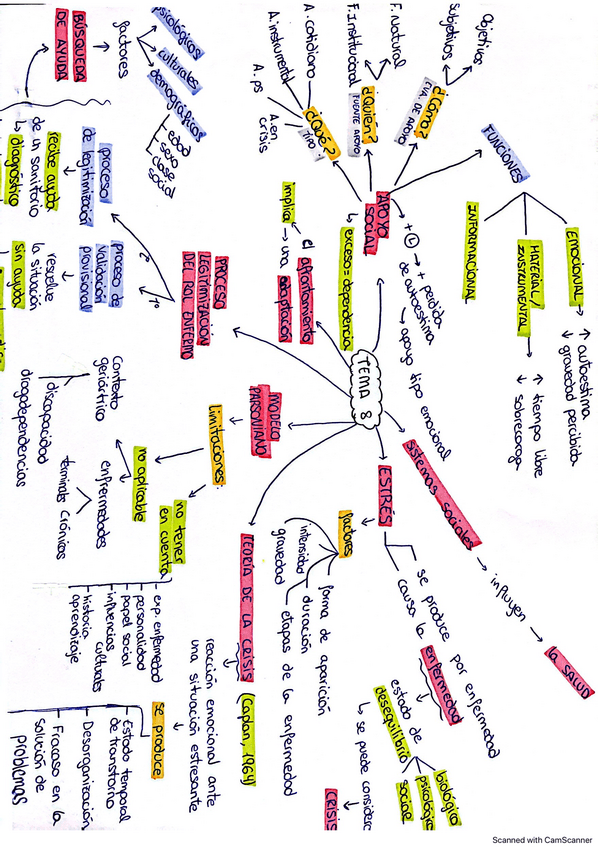 Objetivos
Subjetivos
¿Cómo?
(VÍA DE APOYO)
F. Natural
F. Institucional
¿Quién?
FUENTE APOYO
A. cotidiano
A. instrumental
A. ps
A. en
crisis
¿Qué?
TIPO
APOYO
SOCIAL
↳ exceso = dependencia
FUNCIONES
EMOCIONAL
↑ autoestima
↓ gravedad percibida
MATERIAL/
INSTRUMENTAL
↑ tiempo libre
↓ sobrecarga
INFORMACIONAL
+ → + perdida
de autoestima
→ apoyo tipo emocional
TEMA 8
sistemas sociales → influyen → la SALUD
ESTRÉS
se produce por enfermedad
causa la enfermedad
estado de
desequilibrio
biológico
psicológico
social
↳ se puede considerar
CRISIS
factores
forma de aparición
duración
intensidad
gravedad
etapas de la enfermedad
El afrontamiento
implica → una adaptación
TEORÍA DE LA CRISIS (Caplan, 1964)
reacción emocional ante
una situación estresante
se produce
Estado temporal
de trastorno
Desorganización
Fracaso en la
solución de
problemas
MODELO
PARSONIANO
limitaciones:
no tener
en cuenta
exp. enfermedad
personalidad
papel social
influencias
culturales
historia
aprendizaje
no aplicable
enfermedades
terminales
crónicas
Contexto
geriátrico
discapacidad
drogodependencias
PROCESO
LEGITIMIZACIÓN
DEL ROL ENFERMO
1º
proceso de
validación
provisional
resuelve
la situación
sin ayuda
2º
proceso
de legitimización
recibe ayuda
de un sanitario
↳ diagnóstico
BÚSQUEDA
DE AYUDA
factores
psicológicos
culturales
demográficos
edad
sexo
clase
social
Scanned with CamScanner